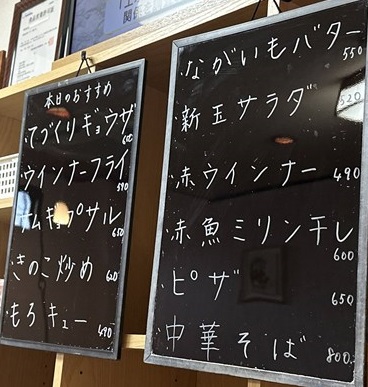 本日のおすすめ
・てづくりギョウザ
600
・ウインナーフライ
590
・サムギョプサル
650
・きのこ炒め
620
・もろキュー
490
・ながいもバター
550
・新玉サラダ
520
・赤ウインナー 490
・赤魚ミリン干し
600
・ピザ
650
・中華そば 800.